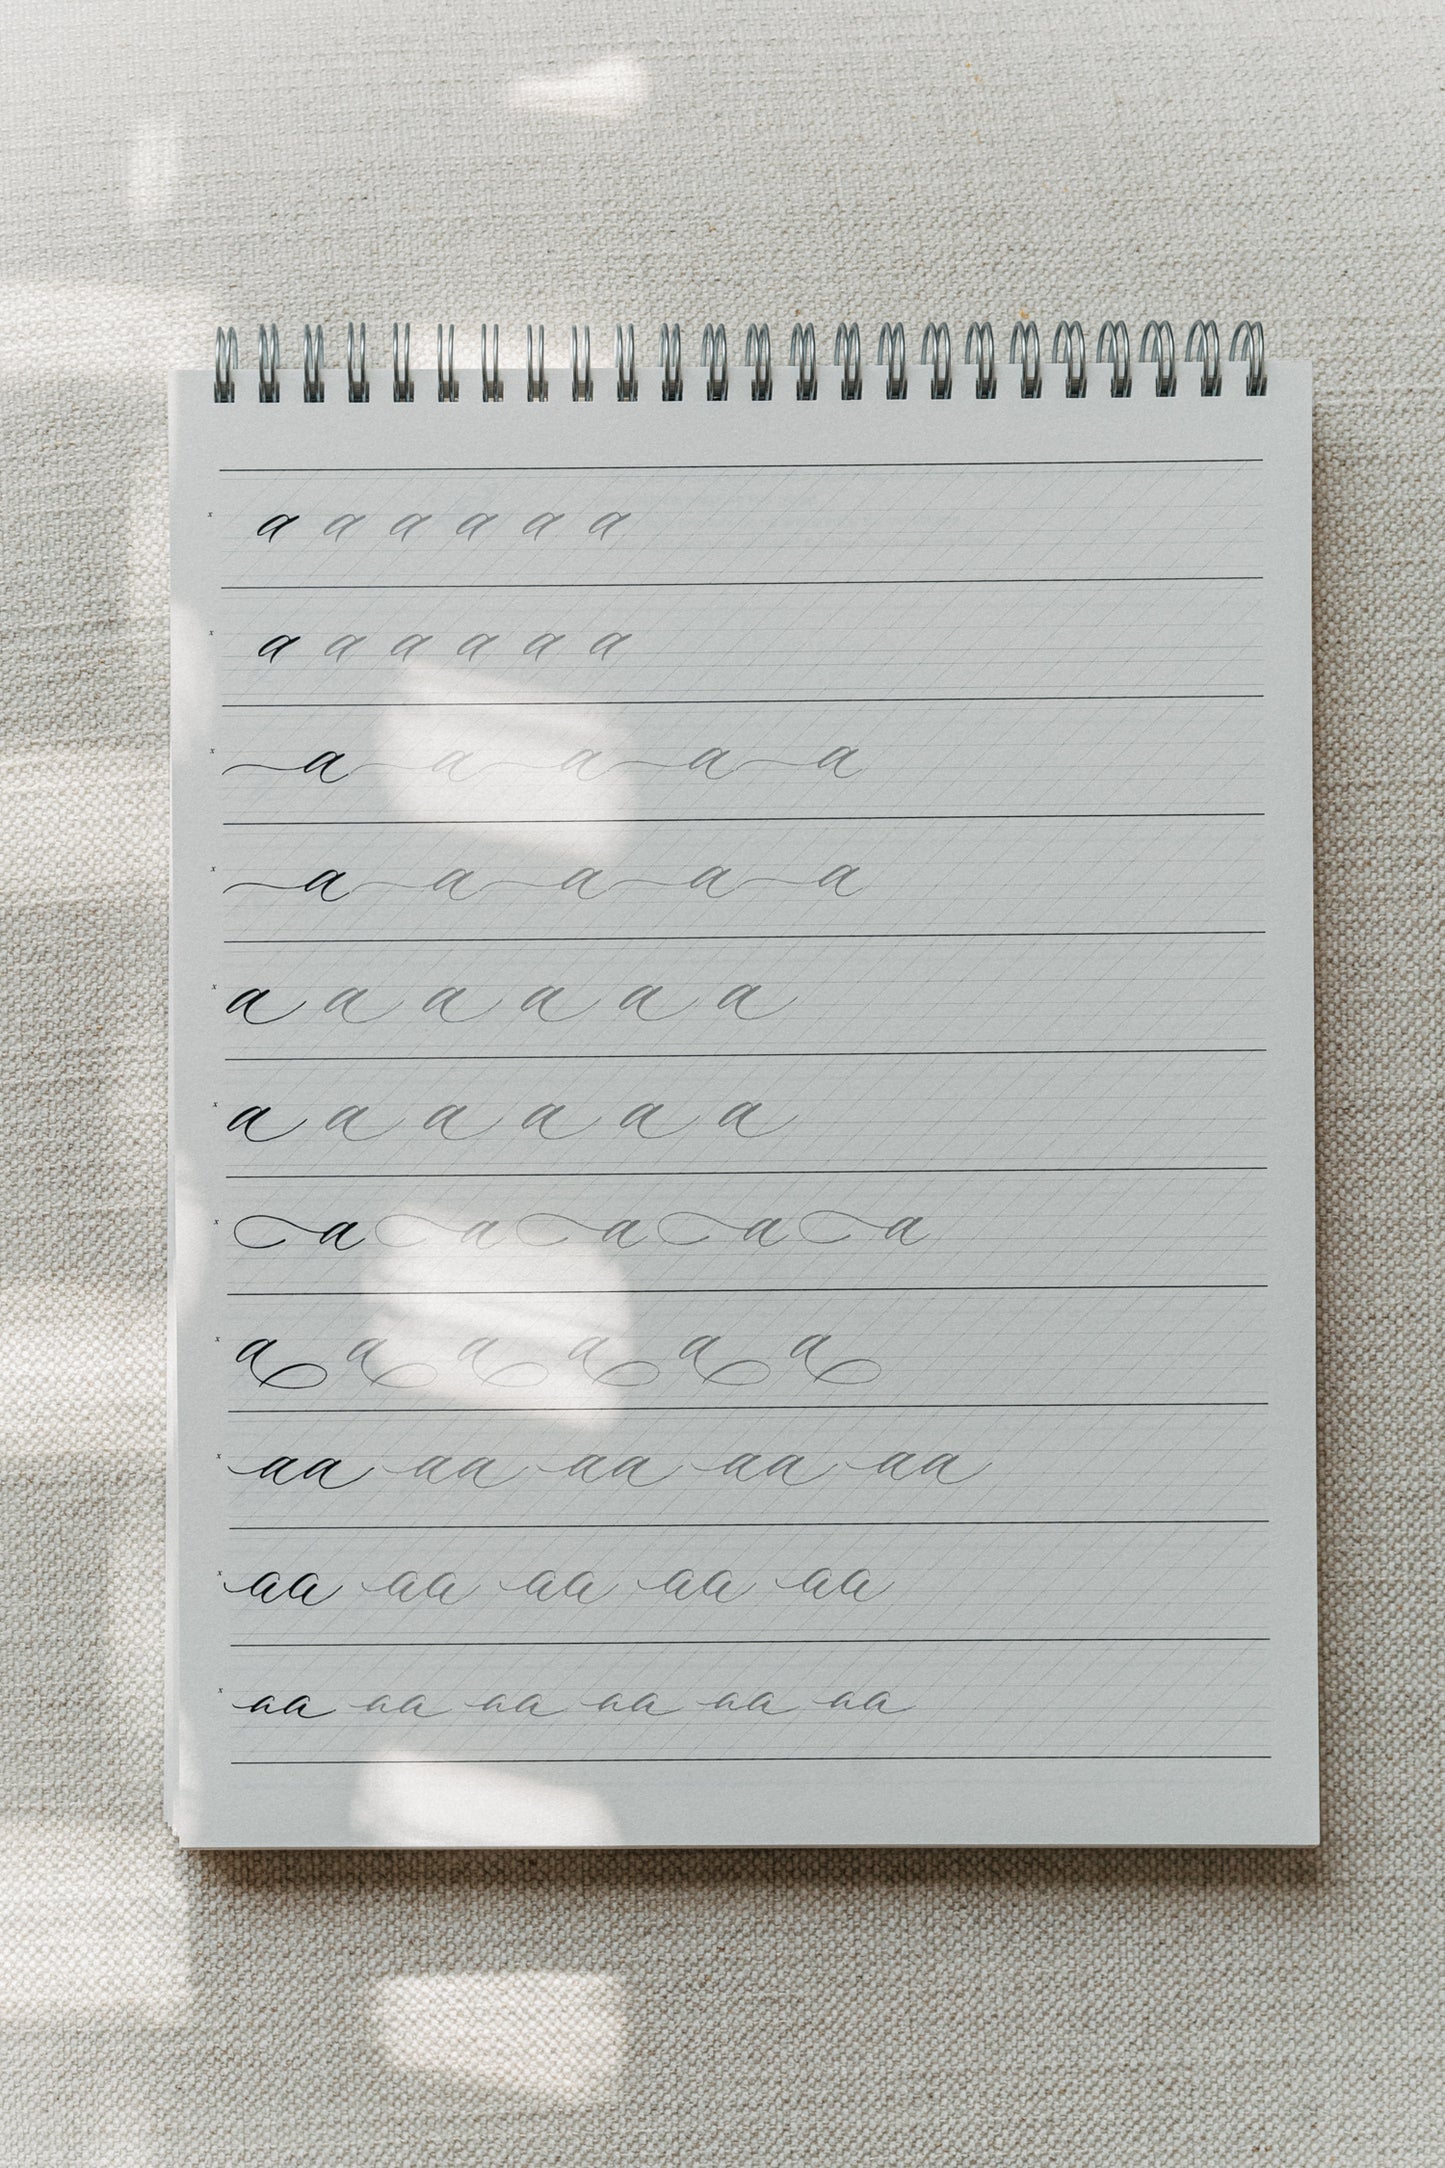 x a a a a a a
x a a a a a a
x a a a a a
x a a a a a
x a a a a a a
x a a a a a a
x a a a a a
x a a a a a a
x aa aa aa aa aa
x aa aa aa aa aa
x aa aa aa aa aa aa